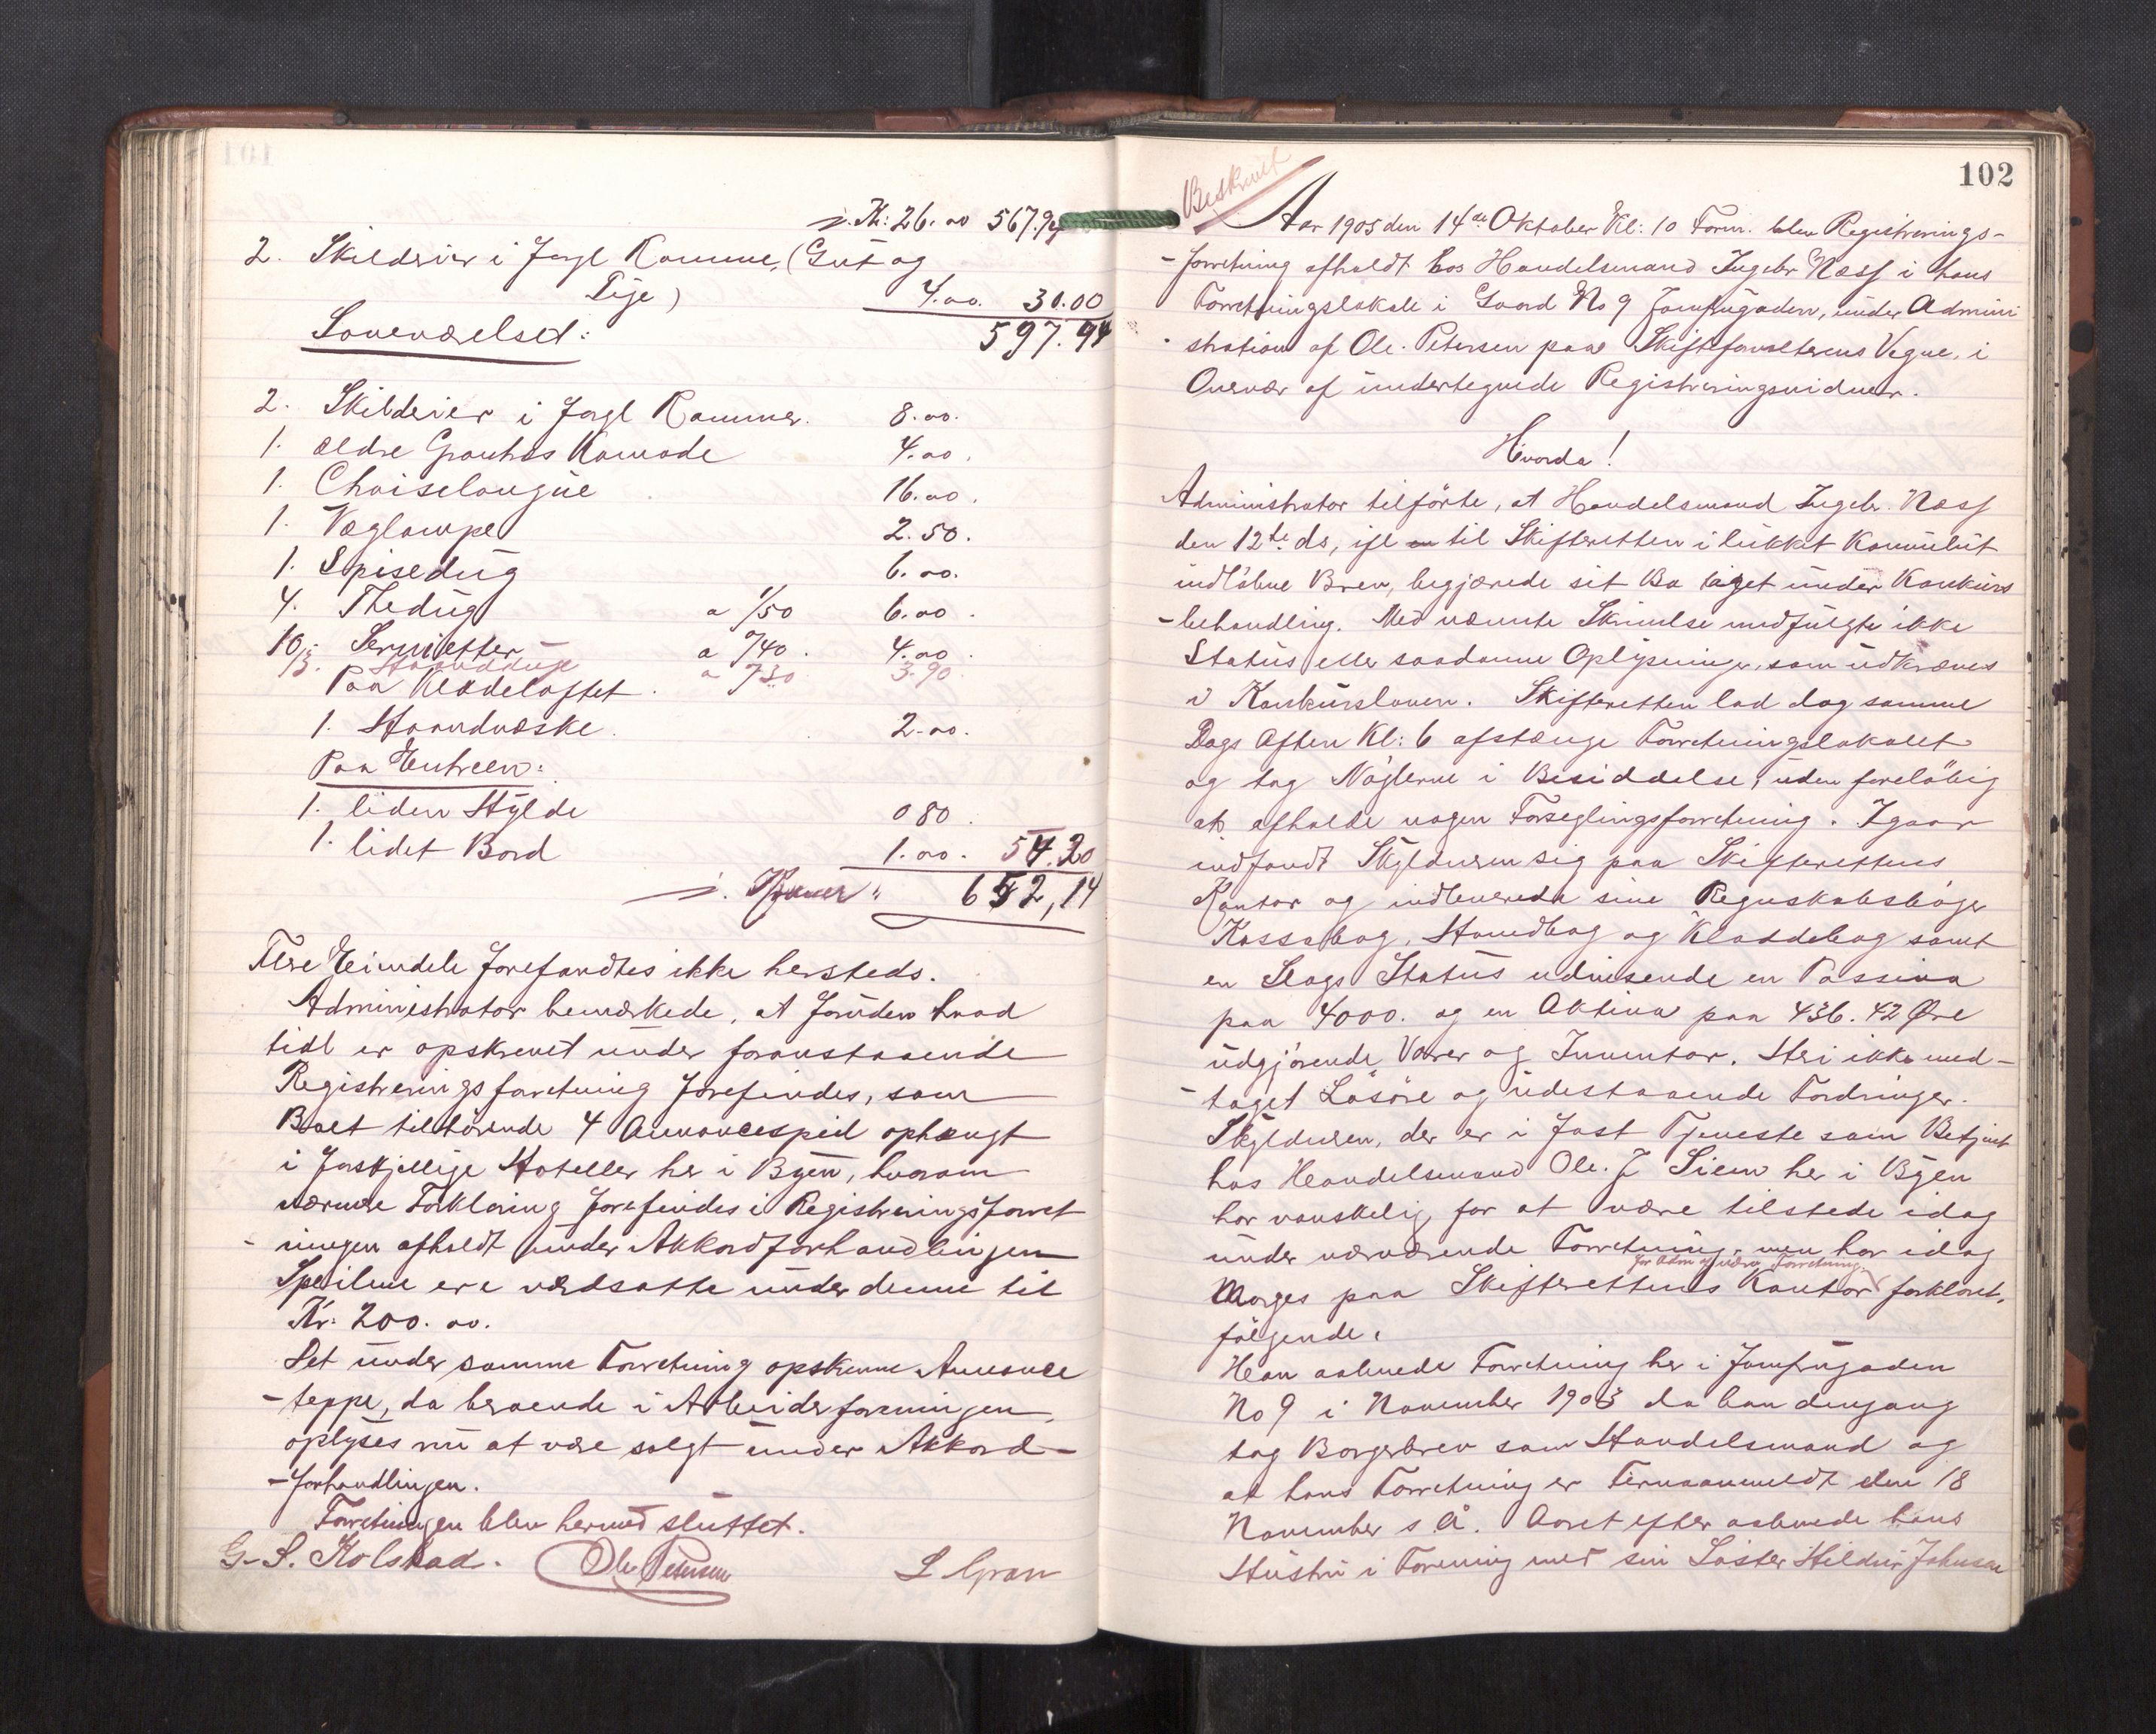 i. Kr: 26.00 567.94
2. Skilderier i forgl Ramme, (Gut og
Pige) 4.00. 30.00
597.94
Soveværelset:
2. Skilderier i forgl Rammer. 8.00.
1. ældre Grauhos Komode 4.00.
1. Chaiselongue 16.00.
1. Væglampe 2.50.
1. Spisedug 6.00.
4. Thedug a 1/50 6.00.
10 Servietter a 0/40. 4.00.
13. Haandduge a 0/30 3.90
Paa Klædeloftet.
1. Haandvæske. 2.00.
Paa Entreen:
1. liden Hylde 0 80.
1. lidet Bord 1.00. 54.20
i. Kroner 652,14
Flere Eiendele forefandtes ikke hersteds.
Administrator bemærkede, at foruden hvad
tidl er opskrevet under foranstaaende
Registreringsforretning forefindes, som
Boet tilhörende 4 Annoncespeil ophængt
i forskjellige Hoteller her i Byen, hvorom
nærmere Forklaring forefindes i Registreringsforret
-ningen afholdt under Akkordforhandlingen
Speilene ere værdsatte under denne til
Kr: 200.00.
Det under samme Forretning opskrevne Annonce
-teppe, da beroende i Arbeiderforeningen,
oplyses nu at være solgt under Akkord-
-forhandlingen.
Forretningen blev hermed sluttet.
G. S. Kolstad. Ole Petersen L Gran
102
Beskrevet
Aar 1905 den 14de Oktober Kl: 10 Form. blev Registrerings-
-forretning afholdt hos Handelsmand Ingebr Næss i hans
Forretningslokale i Gaard No 9 Jomfrugaden, under Admini
-stration af Ole. Petersen paa Skifteforvalterens Vegne, i
Overvær af undertegnede Registreringsvidner.
Hvorda!
Administrator tilförte, at Handelsmand Ingebr. Næss
den 12te ds, ifl en til Skifteretten i lukket Konvolut
indlöbne Brev, begjærede sit Bo taget under Konkurs
-behandling. Med nævnte Skrivelse medfulgte ikke
Status eller saadanne Oplysninger, som udkræves
i Konkursloven. Skifteretten lod dog samme
Dags Aften Kl: 6 afstænge Forretningslokalet
og tog Nöglerne i Besiddelse, uden foreløbig
at afholde nogen Forseglingsforretning. Igaar
indfandt Skyldneren sig paa Skifterettens
Kontor og indleverede sine Regnskabsböger
Kassabog, Handbog og Kladdebog samt
en Slags Status udvisende en Passiva
paa 4000. og en Aktiva paa 436.42 Øre
udgjørende Varer og Inventar. Heri ikke med-
-taget Lösöre og udestaaende Fordringer.
Skyldneren, der er i fast Tjeneste som Betjent
hos Handelsmand Ole. J Siem her i Byen
har vanskelig for at være tilstede idag
under nærværende Forretning, men har idag
for Adm af nærv. Forretning
Morges paa Skifterettens Kontor forklaret,
fölgende.
Han aabnede Forretning her i Jomfrugaden
No 9 i November 1903 da han dengang
tog Borgerbrev som Handelsmand og
at hans Forretning er Firmaanmeldt den 18
November s. å. Aaret efter aabnede hans
Hustru i Forening med sin Söster Hildur Johnsen